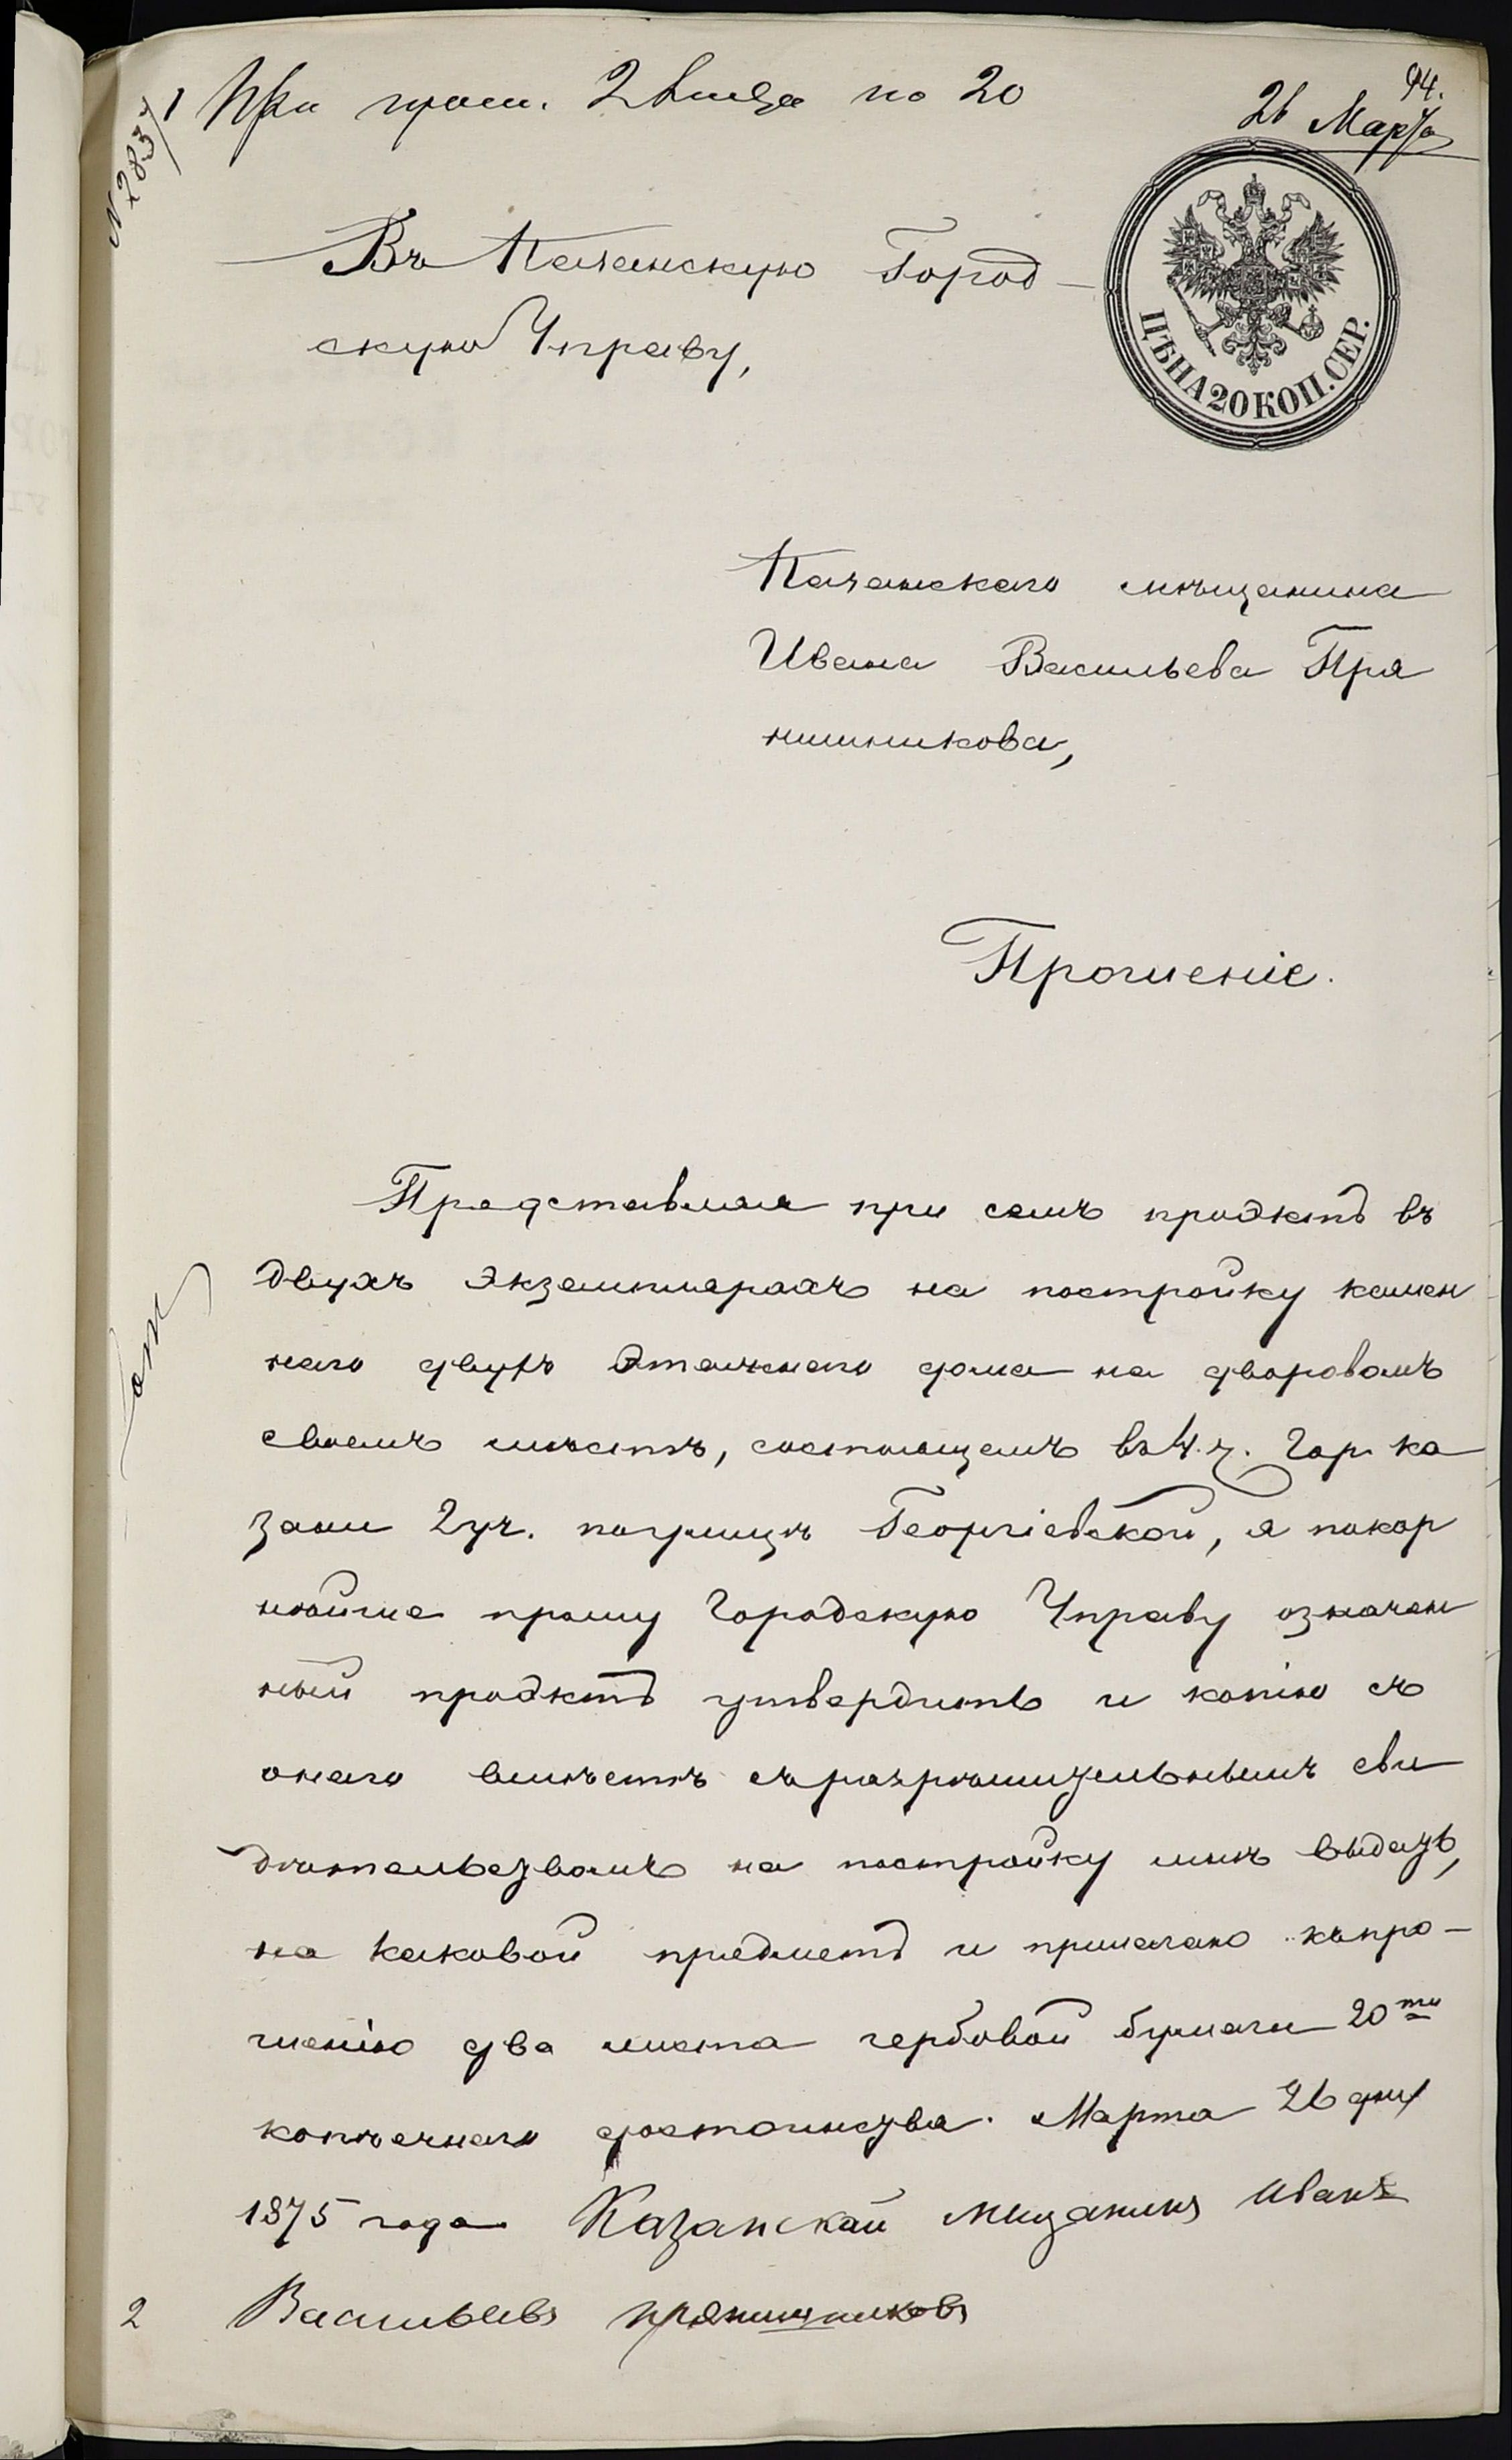 94.
26 Марта
При прош. 2 листа по 20
N 2837
Въ Казанскую Город-
скую Управу,
ЦѢНА 20 КОП. СЕР.
Казанскаго мѣщанина
Ивана Васильева Пря
нишникова,
Прошеніе.
Представляя при семъ проэктъ въ
двухъ экземплярахъ на постройку камен
наго двухъ этажнаго дома на дворовомъ
своемъ мѣстѣ, состоящемъ въ 4.ч. гор. Ка
зани 2 уч. по улицѣ Георгіевской, я покор
нѣйше прошу Городскую Управу означен
ный проэктъ утвердить и копію съ
онаго вмѣстѣ съ разрѣшительнымъ сви
дѣтельствомъ на постройку мнѣ выдать,
на каковой предметъ и прилагаю къ про-
шенію два листа гербовой бумаги 20ти
копѣечнаго достоинства. Марта 26 дня
1875 года Казанскай мещанинъ Иванъ
Васильевъ прянишниковъ
2